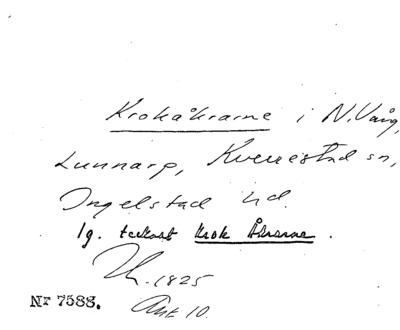 Krokåkrarne i N. Vång,
Lunnarp, Kverrestad sn,
Ingelstad hd.
lg. tecknat Krok Åkrarne.
Lh. 1825
Akt 10.
Nr 7588.